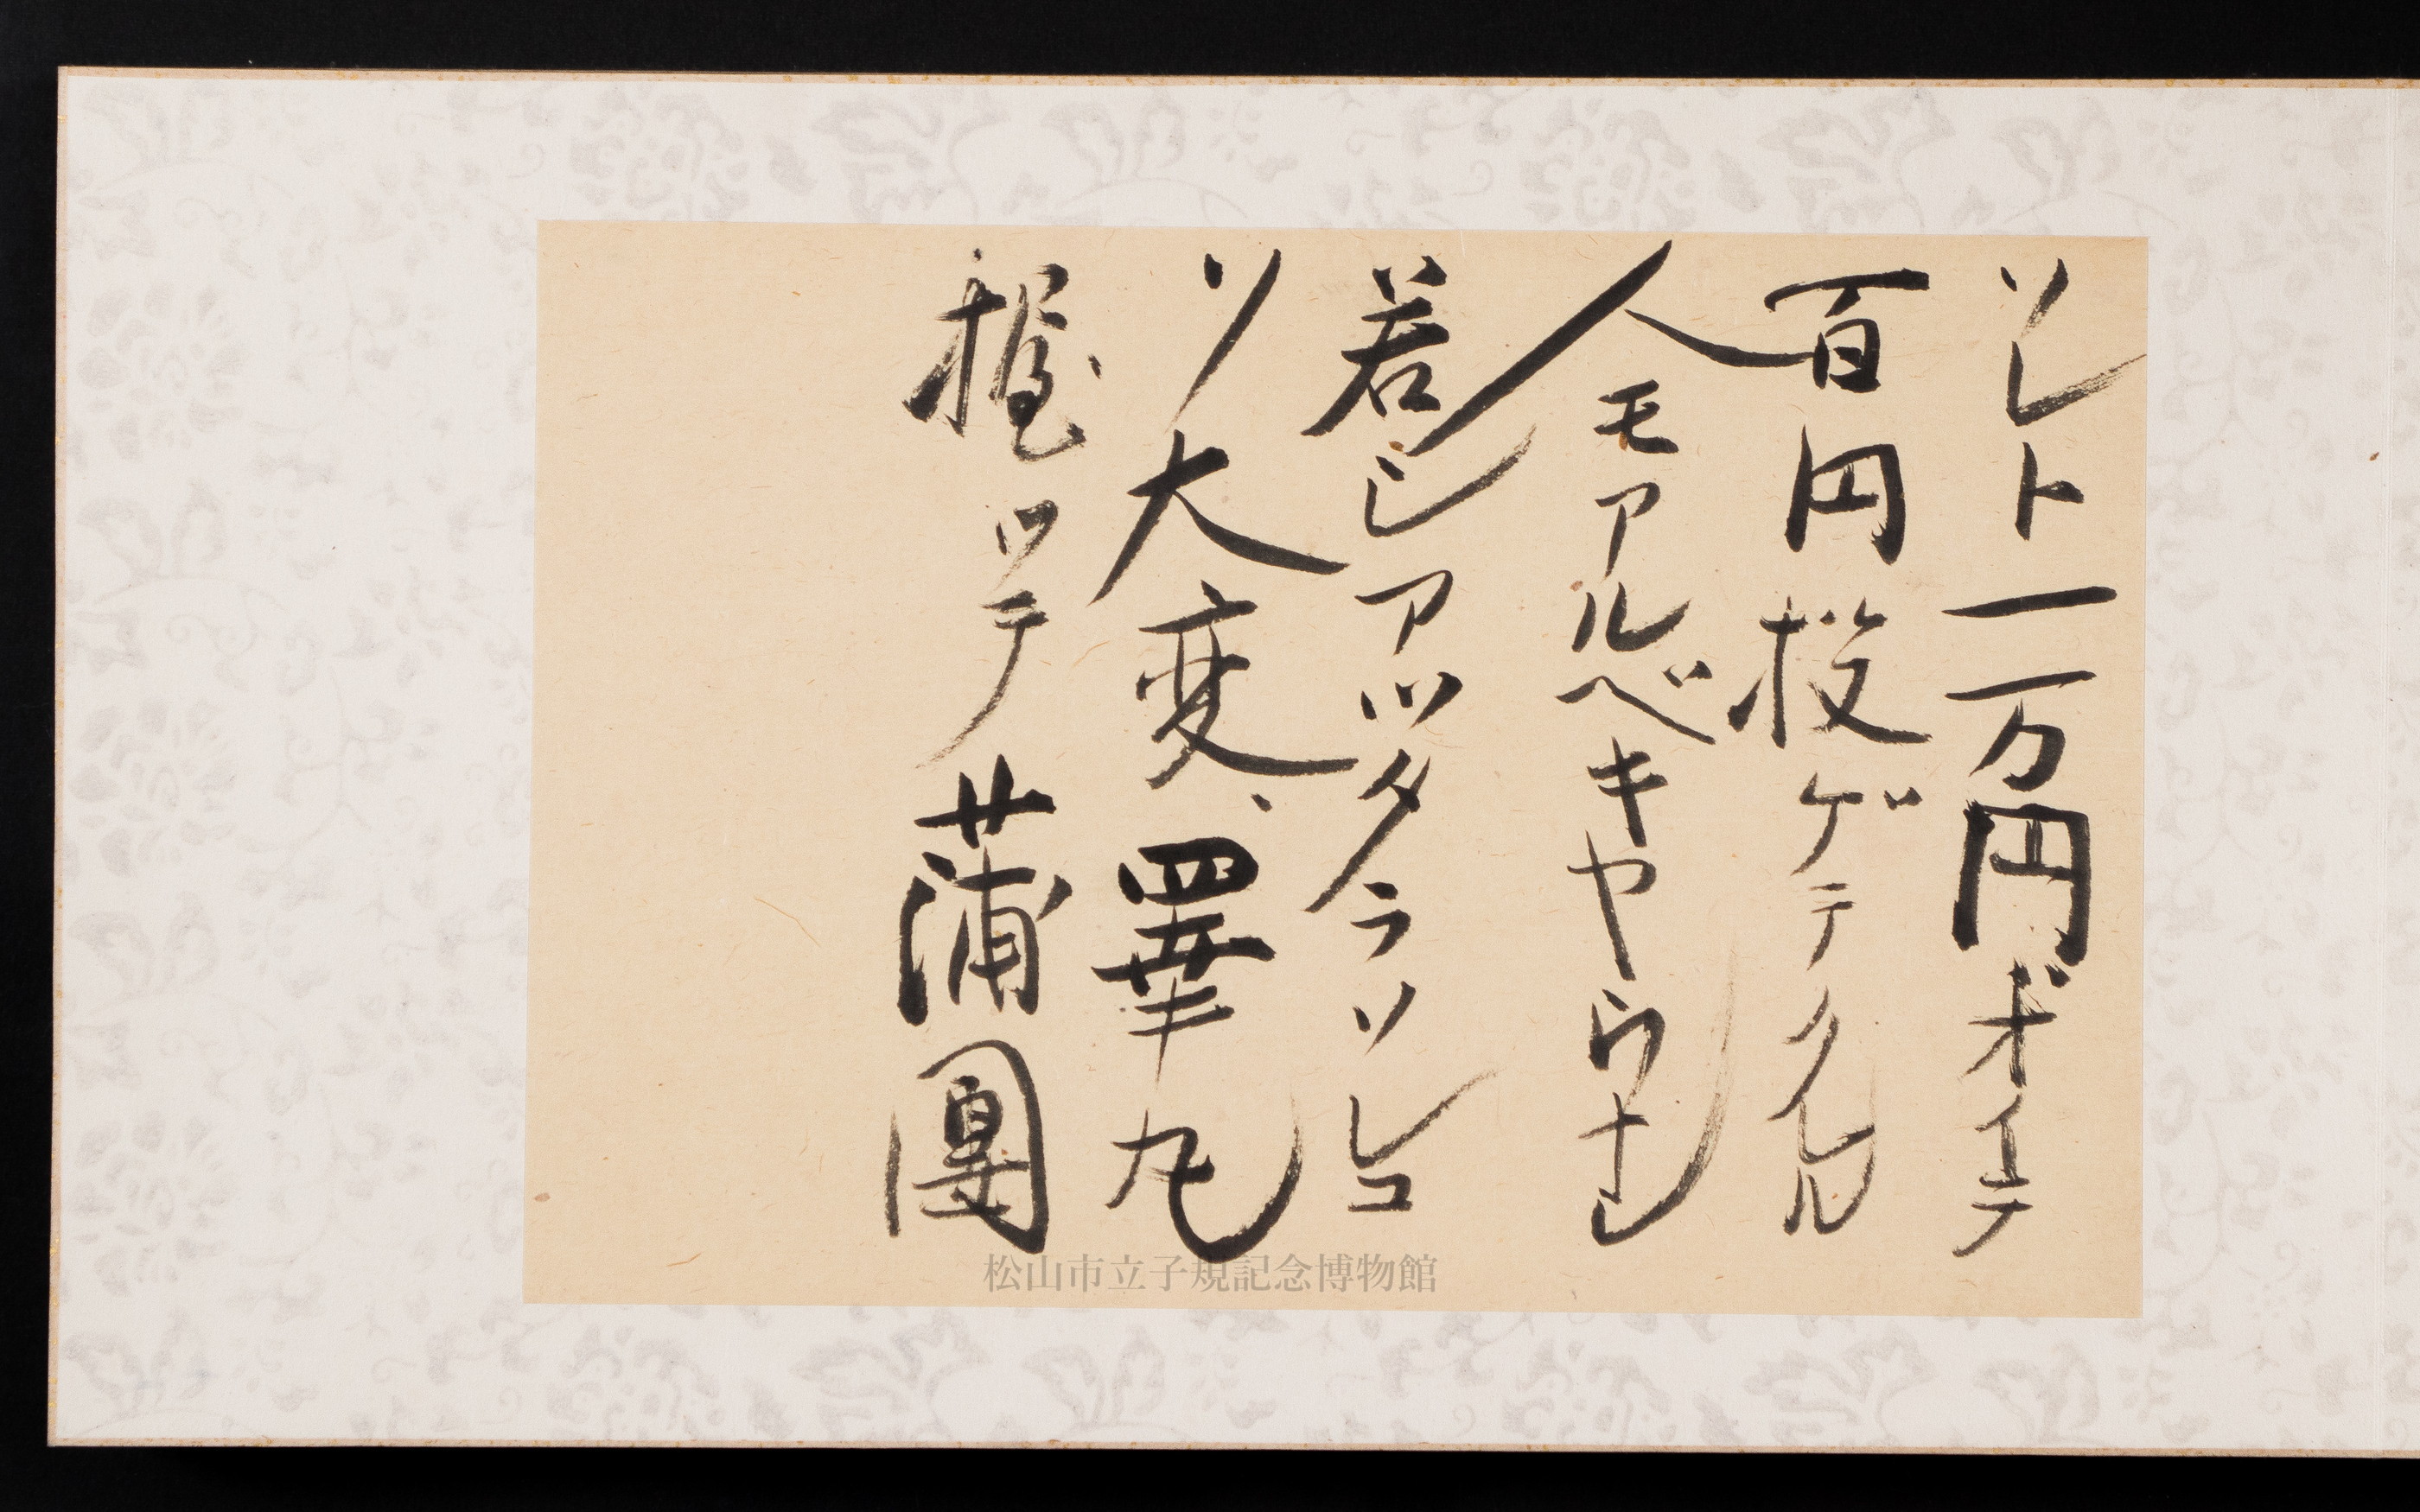 ソレト一万円オイテ
百円投ゲテクレル
人モアルベキヤウナシ
若シアツタラソレコ
ソ大変、睾丸
握ツテ蒲團
松山市立子規記念博物館